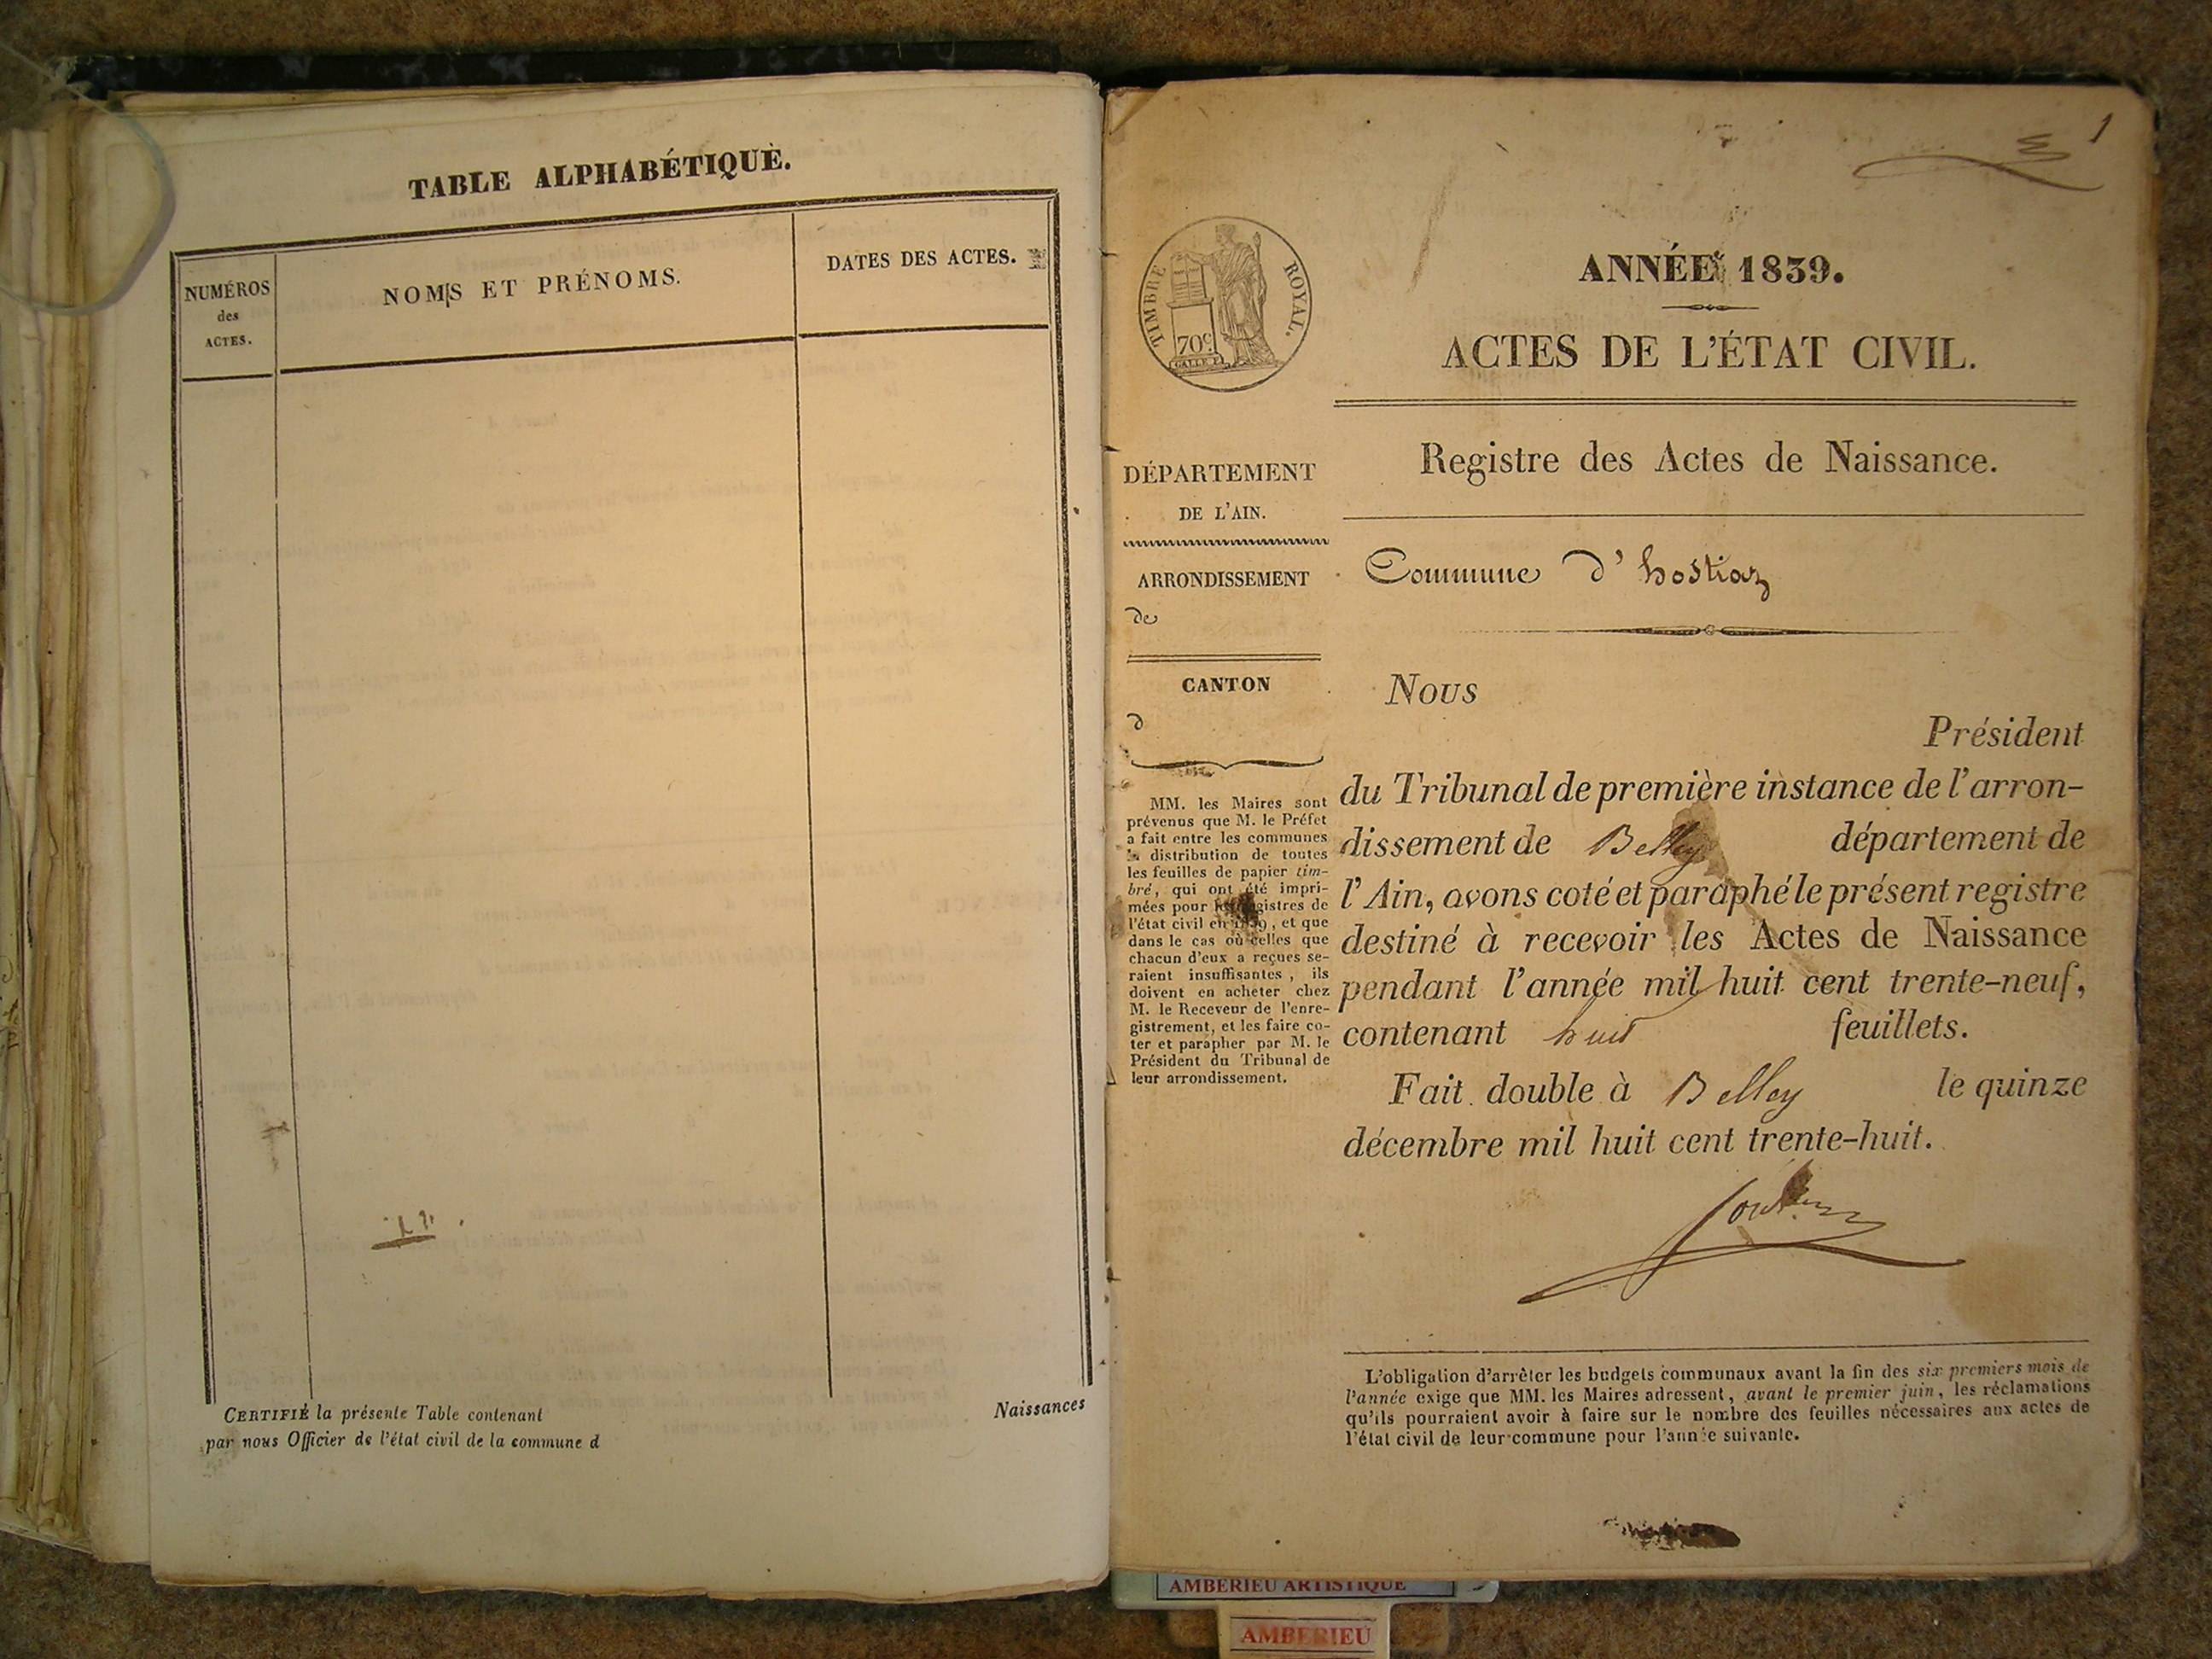 TABLE ALPHABÉTIQUE.
NUMÉROS
des
ACTES.
NOMS ET PRÉNOMS.
DATES DES ACTES.
CERTIFIÉ la présente Table contenant Naissances
par nous Officier de l'état civil de la commune d
1
TIMBRE ROYAL.
70c
ANNÉE 1839.
ACTES DE L'ÉTAT CIVIL.
Registre des Actes de Naissance.
DÉPARTEMENT
DE L'AIN.
ARRONDISSEMENT
de
CANTON
d
MM. les Maires sont
prévenus que M. le Préfet
a fait entre les communes
la distribution de toutes
les feuilles de papier tim-
bré, qui ont été impri-
mées pour les registres de
l'état civil en 1839, et que
dans le cas où celles que
chacun d'eux a reçues se-
raient insuffisantes, ils
doivent en acheter chez
M. le Receveur de l'enre-
gistrement, et les faire co-
ter et parapher par M. le
Président du Tribunal de
leur arrondissement.
Commune d'hostiaz
Nous
Président
du Tribunal de première instance de l'arron-
dissement de Belley département de
l'Ain, avons coté et paraphé le présent registre
destiné à recevoir les Actes de Naissance
pendant l'année mil huit cent trente-neuf,
contenant huit feuillets.
Fait double à Belley le quinze
décembre mil huit cent trente-huit.
L'obligation d'arrêter les budgets communaux avant la fin des six premiers mois de
l'année exige que MM. les Maires adressent, avant le premier juin, les réclamations
qu'ils pourraient avoir à faire sur le nombre des feuilles nécessaires aux actes de
l'état civil de leur commune pour l'année suivante.
AMBERIEU ARTISTIQUE
AMBERIEU